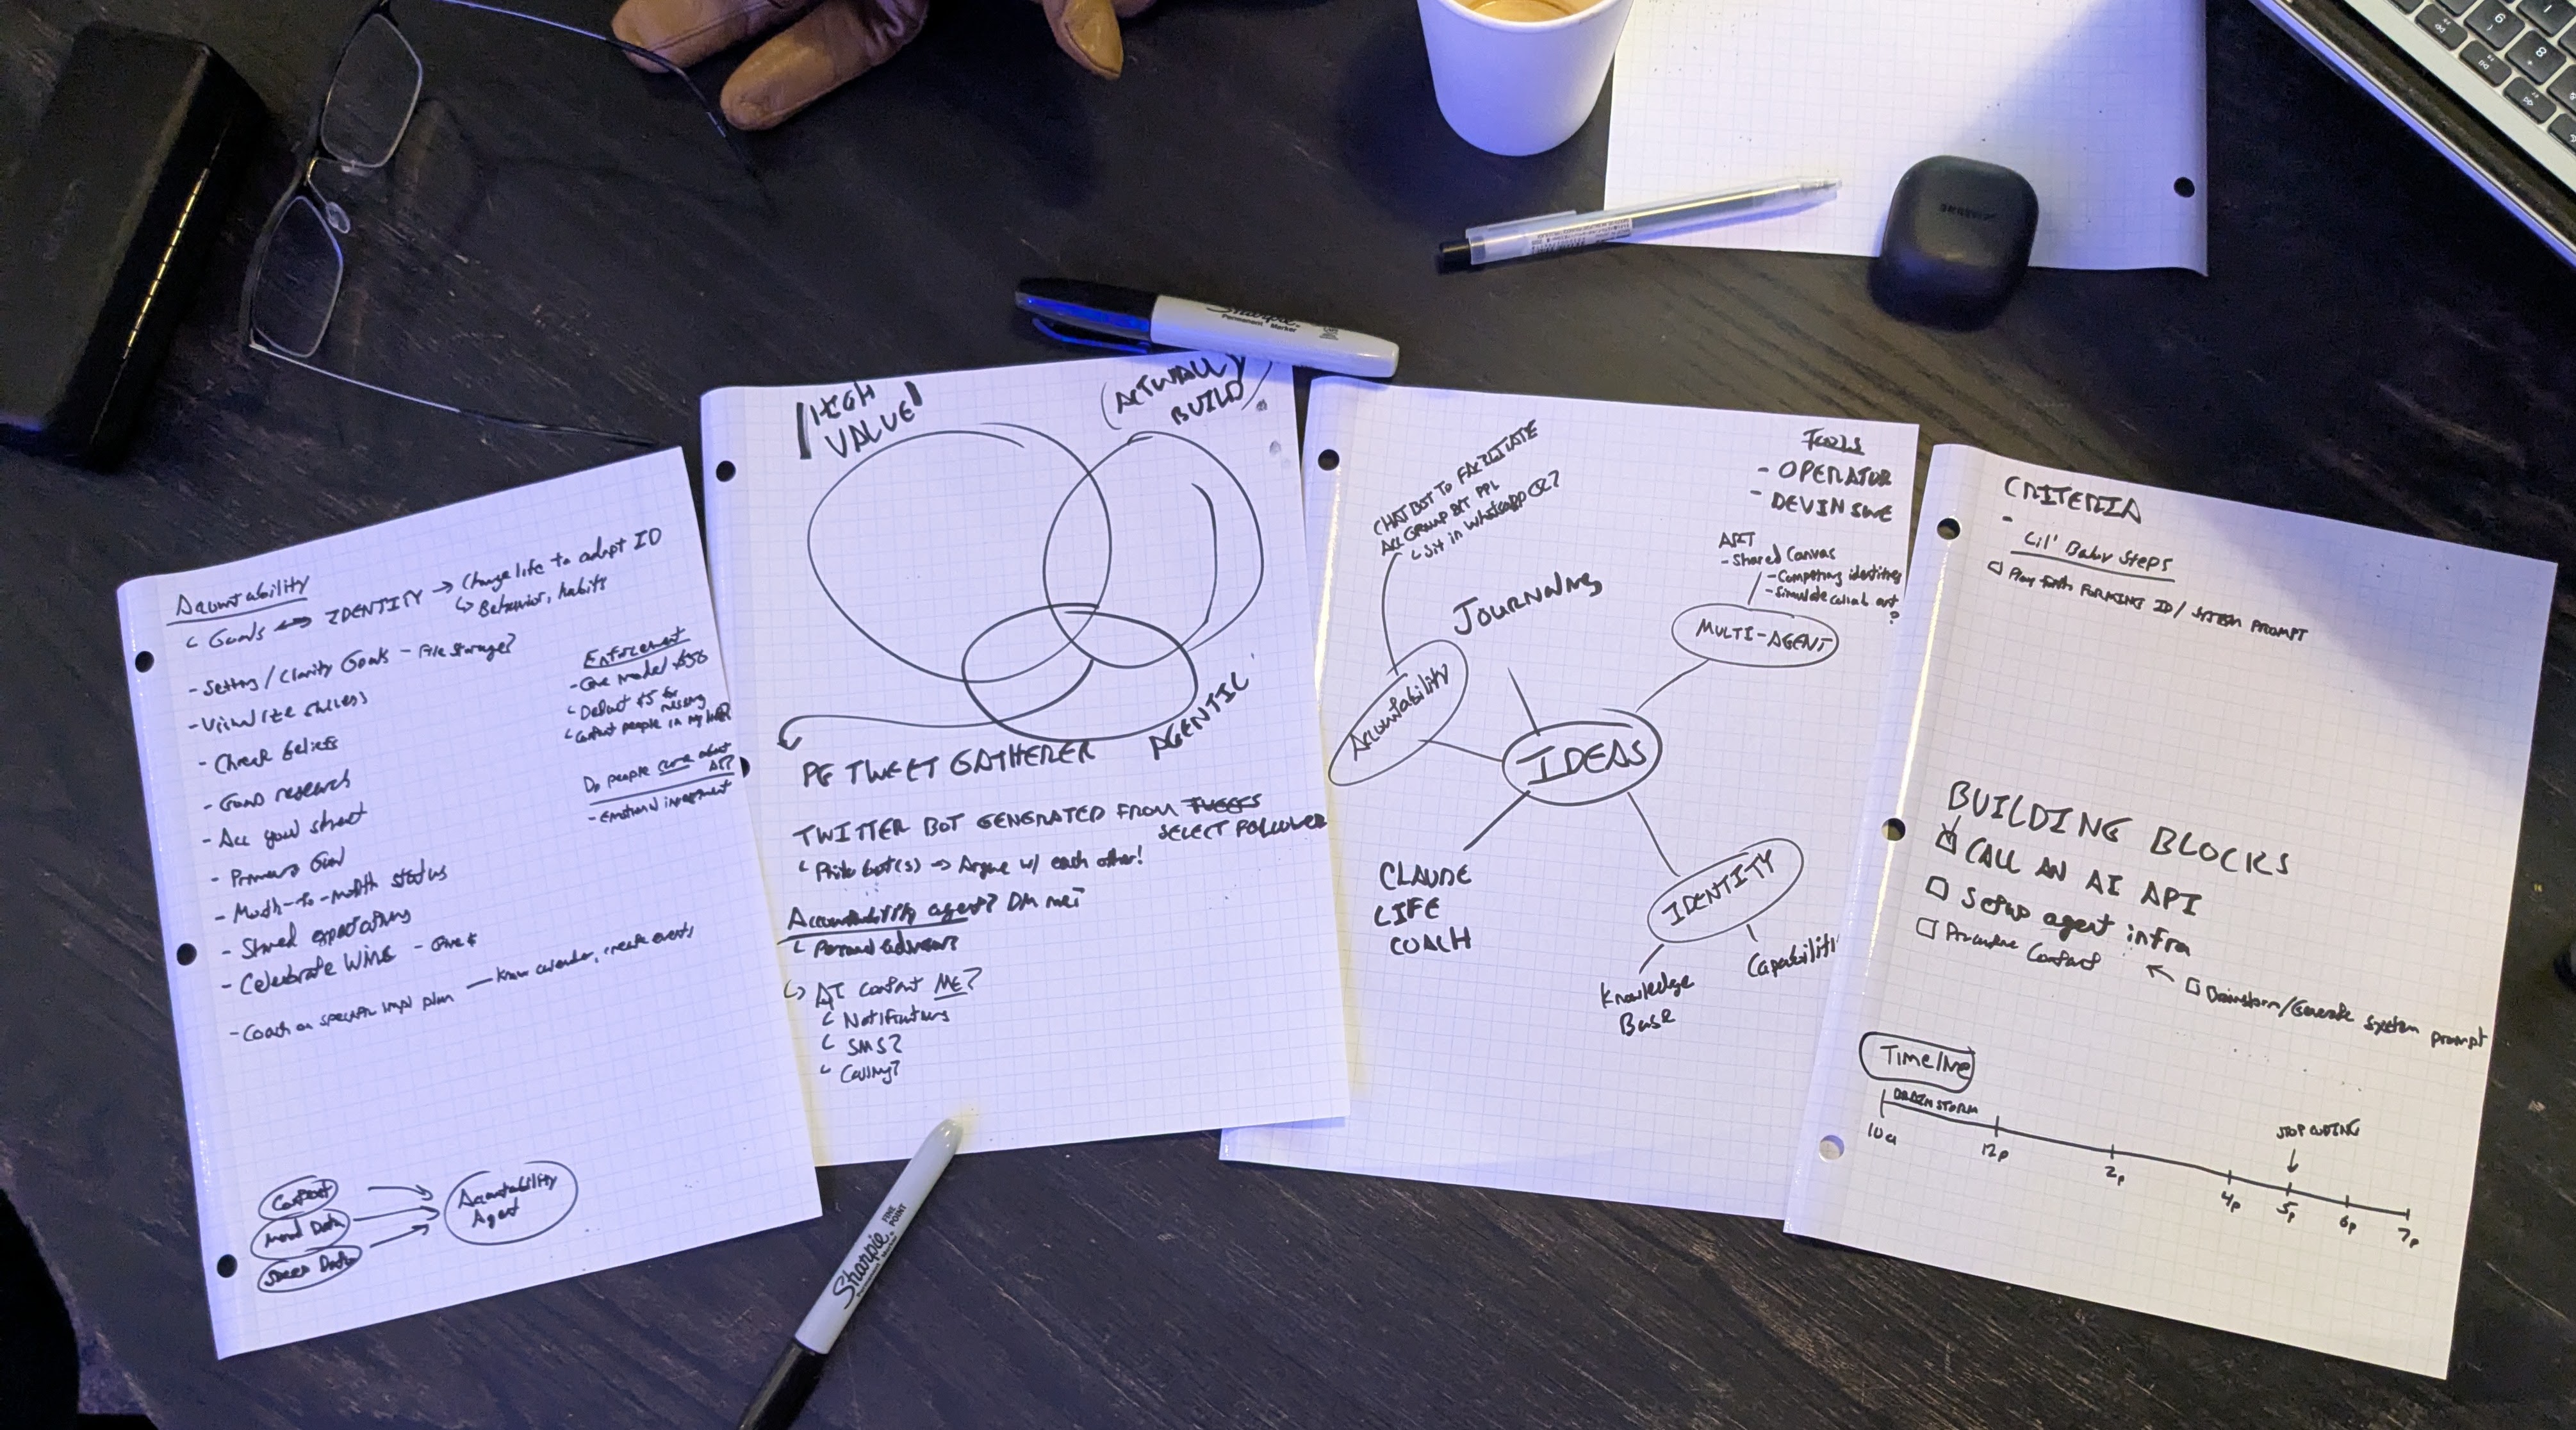 Accountability
Goals ↔ IDENTITY → Change life to adapt ID
↳ Behavior, habits
- Setting / Clarity Goals - File storage?
- Visualize success
- Check beliefs
- Goal research
- Acc goal street
- Primary Goal
- Month-to-month status
- Shared expectations
- Celebrate Wins - Give $
- Coach on specific impl plan — Know calendar, create events
Enforcement
- Give model $50
- Deduct $5 for missing
- Contact people in my life?
Do people care about AI?
- Emotional investment
Context
Mood Data
Sleep Data
Accountability
Agent
HIGH
VALUE
(ACTUALLY
BUILD)
AGENTIC
PG TWEET GATHERER
TWITTER BOT GENERATED FROM
SELECT FOLLOWER
Philo bot(s) → Argue w/ each other!
Accountability agent? DM me?
Personal advisor?
↳ AI contact ME?
Notifications
SMS?
Calling?
CHAT BOT TO FACILITATE
ACC GROUP BTT PPL
Sit in WhatsApp GC?
JOURNALING
Accountability
IDEAS
CLAUDE
LIFE
COACH
Tools
- OPERATOR
- DEVIN SWE
ART
- Shared Canvas
- Competing identities
- Simulate collab art
?
MULTI-AGENT
IDENTITY
Knowledge
Base
Capabiliti
CRITERIA
-
Lil' Baby Steps
☐ Play with FORMING ID / SYSTEM PROMPT
BUILDING BLOCKS
☑ CALL AN AI API
☐ Setup agent infra
☐ Proactive Contact
← ☐ Brainstorm/Generate system prompt
Timeline
BRAINSTORM
STOP CODING
10a
12p
2p
4p
5p
6p
7p
Sharpie
Permanent Marker
Sharpie
FINE
POINT
SAMSUNG